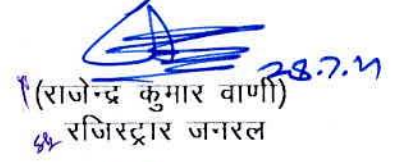 28.7.21
(राजेन्द्र कुमार वाणी)
रजिस्ट्रार जनरल